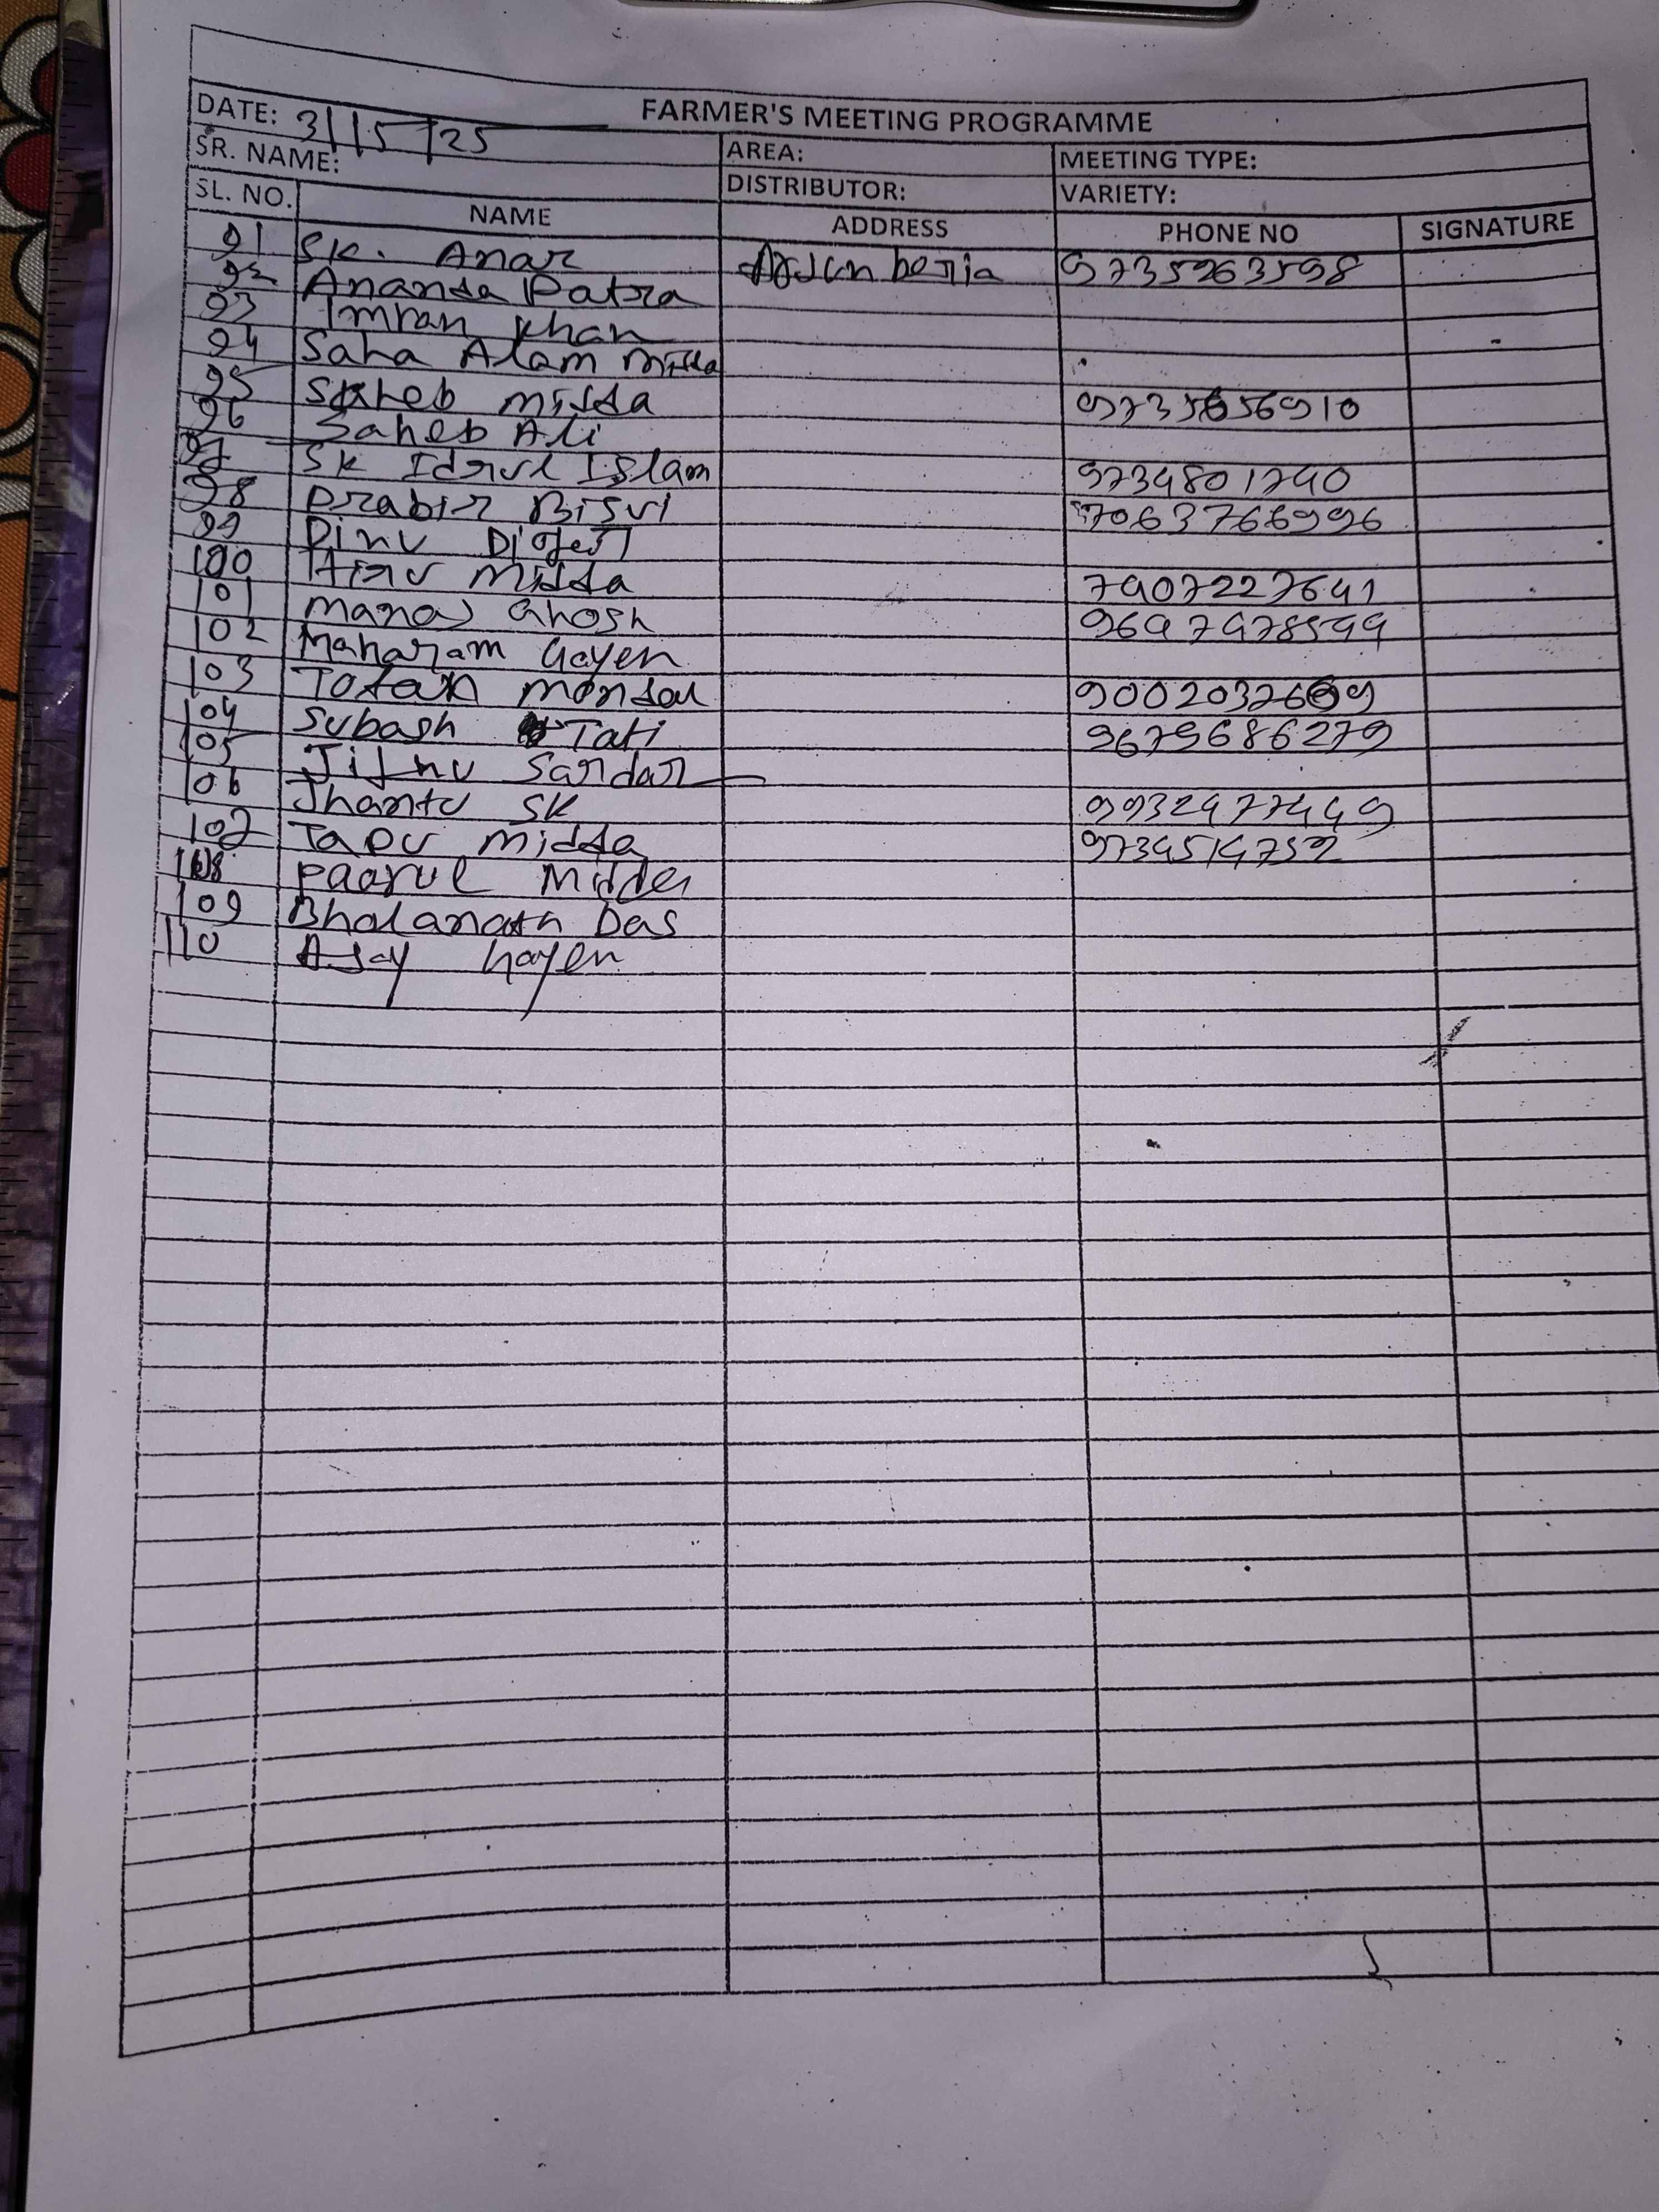 FARMER'S MEETING PROGRAMME
DATE: 31/5/25
SR. NAME: AREA: MEETING TYPE:
DISTRIBUTOR: VARIETY:
SL. NO. NAME ADDRESS PHONE NO SIGNATURE
91 SK. Anar 9735963598
92 Ananda Patra
93 Imran Khan
94 Saha Alam Midda
95 Saheb Midda
96 Saheb Ali
97 SK Idrul Islam 9734801740
98 Prabir Bisui 7063766996
99 Dinu
100 Hiru Midda 7407227641
101 Manas Ghosh 9647478544
102 Maharam Gayen
103 Totan Mondal
104 Subash Tati 9679686279
105 Sardar
106 Jhantu SK 9932477449
107 Tapu Midda
108 Midda
109 Bholanath Das
110 Ajay Gayen